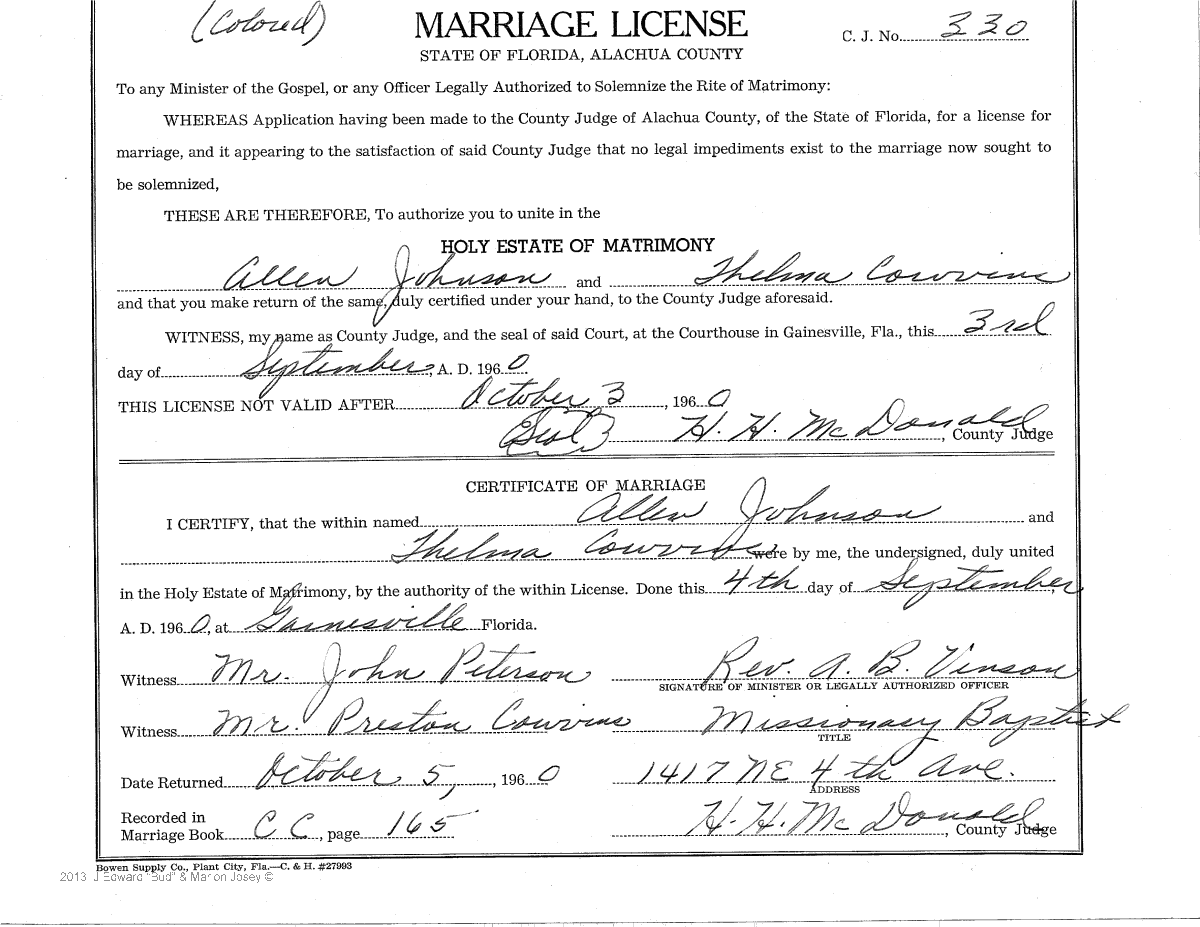 (Colored)
MARRIAGE LICENSE
C. J. No. 330
STATE OF FLORIDA, ALACHUA COUNTY
To any Minister of the Gospel, or any Officer Legally Authorized to Solemnize the Rite of Matrimony:
WHEREAS Application having been made to the County Judge of Alachua County, of the State of Florida, for a license for
marriage, and it appearing to the satisfaction of said County Judge that no legal impediments exist to the marriage now sought to
be solemnized,
THESE ARE THEREFORE, To authorize you to unite in the
HOLY ESTATE OF MATRIMONY
Allen Johnson and Thelma Cowvins
and that you make return of the same, duly certified under your hand, to the County Judge aforesaid.
WITNESS, my name as County Judge, and the seal of said Court, at the Courthouse in Gainesville, Fla., this 3rd
day of September, A. D. 1960
THIS LICENSE NOT VALID AFTER October 3, 1960
(Seal) H. H. McDonald, County Judge
CERTIFICATE OF MARRIAGE
I CERTIFY, that the within named Allen Johnson and
Thelma Cowvins were by me, the undersigned, duly united
in the Holy Estate of Matrimony, by the authority of the within License. Done this 4th day of September,
A. D. 1960, at Gainesville Florida.
Witness Mr. John Peterson Rev. A. B. Vinson
SIGNATURE OF MINISTER OR LEGALLY AUTHORIZED OFFICER
Witness Mr. Preston Cowvins Missionary Baptist
TITLE
Date Returned October 5, 1960 1417 NE 4th Ave.
ADDRESS
Recorded in
Marriage Book CC, page 165 H. H. McDonald, County Judge
Bowen Supply Co., Plant City, Fla.—C. & H. #27993
2013 J Edward "Bud" & Marion Josey ©